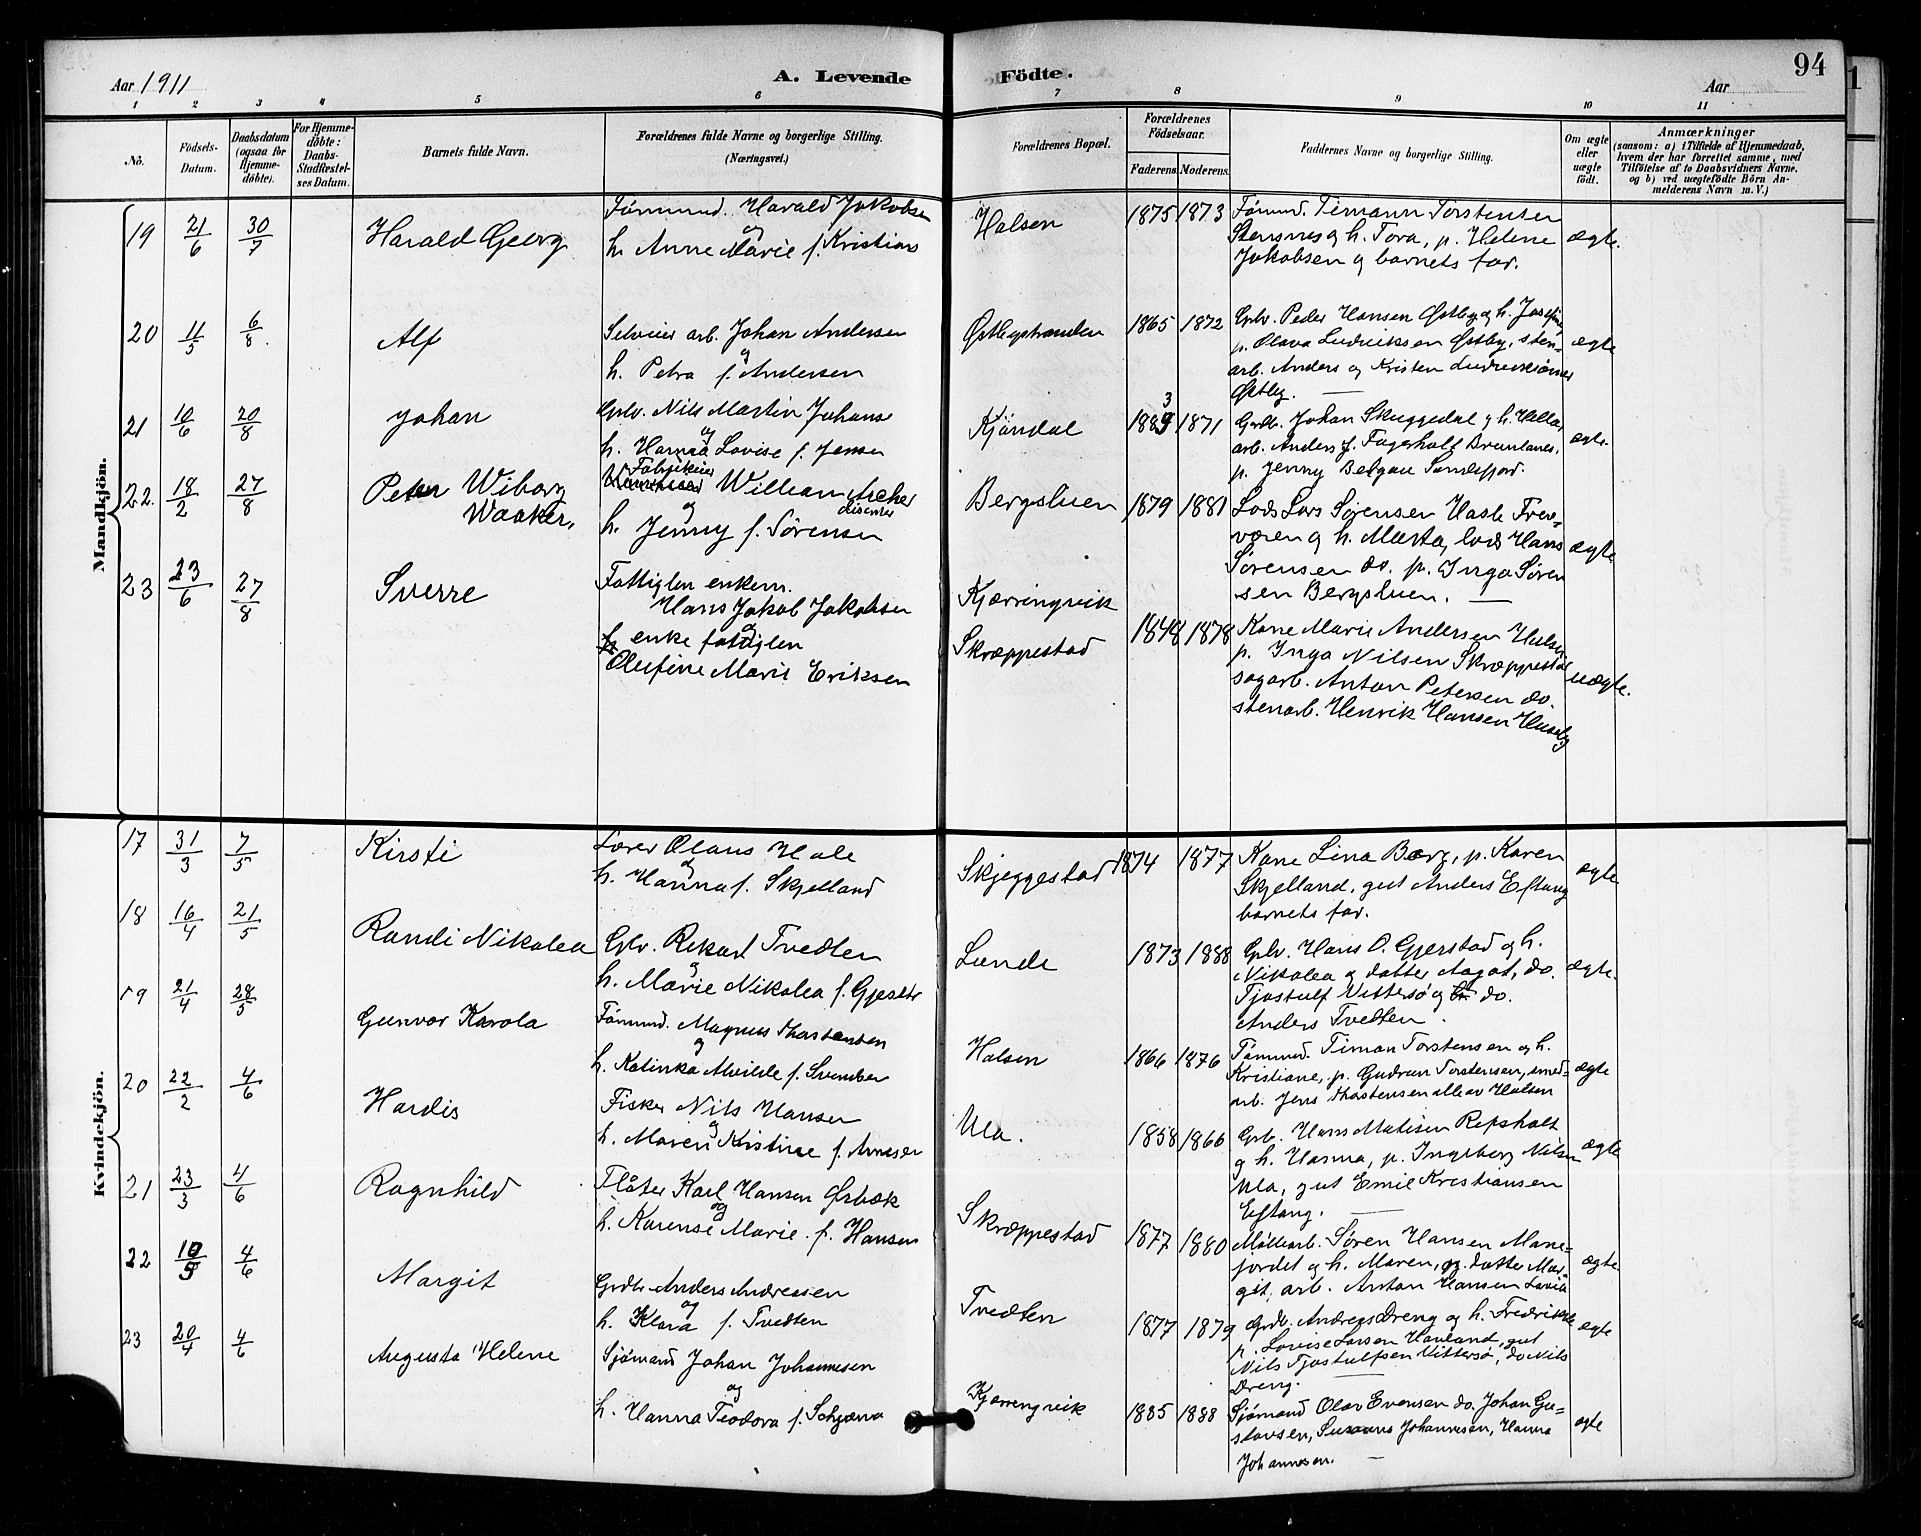 94
Aar 1911
A. Levende
Födte.
Aar
1 2 3 4 5 6 7 8 9 10 11
No.
Födsels-Datum.
Daabsdatum (ogsaa för Hjemme-döbte).
For Hjemme-döbte: Daabs-Stadfæstel-ses Datum.
Barnets fulde Navn.
Forældrenes fulde Navne og borgerlige Stilling.
(Næringsvei.)
Forældrenes Bopæl.
Forældrenes Födselsaar.
Faderens Moderens
Faddernes Navne og borgerlige Stilling.
Om ægte eller uægte födt.
Anmærkninger
(saasom: a) i Tilfælde af Hjemmedaab, hvem der har forrettet samme, med Tilföielse af to Daabsvidners Navne, og b) ved uægtefödte Börn An-melderens Navn m. V.)
Mandkjön.
19 21/6 30/7 Harald Georg
Harald Jakobsen
og
h. Anne Marie f. Kristians
Halsen 1875 1873
Timann Torstensen
Stensnes og h. Tora, p. Helene
Jakobsen og barnets far.
ægte.
20 11/5 6/8. Alf
arb. Johan Andersen
og
h. Petra f. Andersen
Østbystranden 1865 1872
Gbr. Peder Hansen Østby og h. Josefine
p. Olava Ludviksen Østby, sten-
arb. Anders og Kristen Ludviksønner
Østby.
ægte
21 10/6 20/8 Johan
Gbr. Nils Martin Johans
og
h. Hanna Lovise f. Jensen
Kjøndal 1883 1871
Grdb. Johan Skuggedal og h. Hella
arb. Anders J. Fagerholt Brunlanes,
p. Jenny Sandefjord.
ægte.
22. 18/2 27/8 Peter Wiborg
Waaker,
William Archer
og
h. Jenny f. Sørensen
Bergsluen 1879 1881
Lods Lars Sørensen Hasle
og h. Marta, lods Hans
Sørensen do. p. Inga Søren
sen Bergsluen.
ægte
23 23/6 27/8 Sverre
Fattiglem enkem.
Hans Jakob Jakobsen
og
enke fattiglem
Olufine Marie Eriksen
Kjærringvik
Skræppestad
1848 1878
Kone Marie Andersen
p. Inga Nilsen Skræppestad
sagarb. Anton Petersen do.
stenarb. Henrik Hansen Huseby
uægte.
Kvindekjön.
17 31/3 7/5 Kirsti
Lærer Olaus Hole
og
h. Hanna f. Skjelland
Skjeggestad 1874 1877
Kone Lina Berg, p. Karen
Skjelland, gut Anders Eftang
barnets far.
ægte
18 16/4 21/5 Randi Nikolea
Gbr. Rikard Tvedten
og
h. Marie Nikolea f. Gjerstad
Lunde 1873 1888
Gbr. Hans O. Gjerstad og h.
Nikolea og datter Aagot, do.
Tjostulf Vittersø og do.
Anders Tvedten.
ægte.
19 21/4 28/5 Gunvor Karola
Magnus Thorstensen
og
h. Kalinka Alvilde f.
Halsen 1866 1876
Timan Torstensen og h.
Kristiane, p. Gudrun Torstensen, smed-
arb. Jens Thorstensen alle av Halsen
ægte
20 22/2 4/6 Hardis
Fisker Nils Hansen
og
h. Maren Kristine f. Arnesen
Ula. 1858 1866
Grb. Hans Matisen Repsholt
og h. Hanna, p. Ingeborg Nilsen
Ula, gut Emil Kristiansen
Eftang.
ægte
21 23/3 4/6 Ragnhild
Flåter Karl Hansen Ørbæk
og
h. Karense Marie f. Hansen
Skræppestad 1877 1880
Møllearb. Søren Hansen Mane-
jordet og h. Maren, og datter Mar-
git, arb. Anton Hansen
ægte
22 10/5 4/6 Margit
Grdb. Anders Andresen
og
h. Klara f. Tvedten
Tvedten 1877 1879
Grdb. Andreas Dreng og h. Fredrikke
p. Lovise Larsen Haaland, gut
Nils Tjostulfsen Vittersø, do Nils
Dreng.
ægte
23 20/4 4/6 Augusta Helene
Sjømand Johan Johannesen
og
h. Hanna Teodora f. Schjærva
Kjærringvik 1885 1888
Sjømand Olav Evensen do. Johan Gu-
stavsen, Susanne Johannesen, Hanna
Johannesen.
ægte